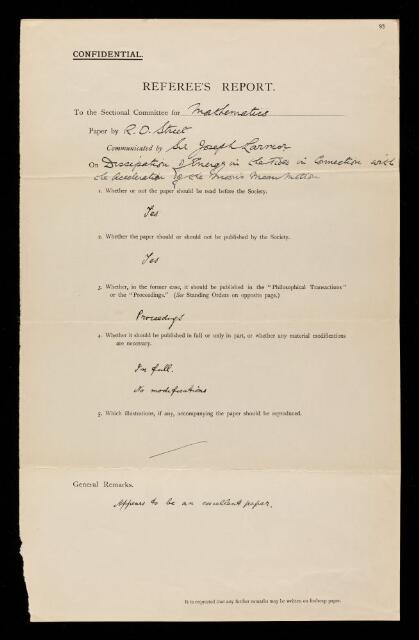 93
CONFIDENTIAL.
REFEREE'S REPORT.
To the Sectional Committee for Mathematics
Paper by R. O. Street
Communicated by Sir Joseph Larmor
On Dissipation of Energy in the Tides in Connection with
the Acceleration of the Moon's Mean Motion
1. Whether or not the paper should be read before the Society.
Yes
2. Whether the paper should or should not be published by the Society.
Yes
3. Whether, in the former case, it should be published in the "Philosophical Transactions"
or the "Proceedings." (See Standing Orders on opposite page.)
Proceedings
4. Whether it should be published in full or only in part, or whether any material modifications
are necessary.
In full.
No modifications
5. Which illustrations, if any, accompanying the paper should be reproduced.
General Remarks.
Appears to be an excellent paper.
It is requested that any further remarks may be written on foolscap paper.